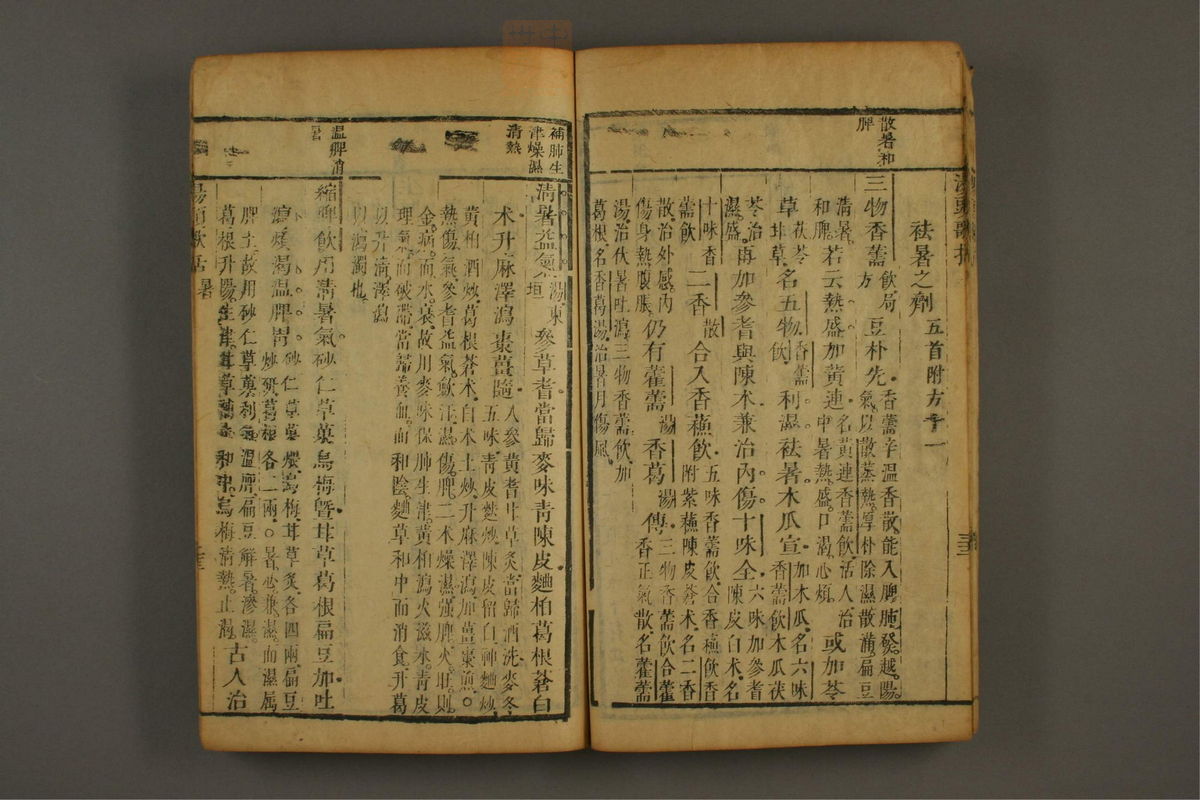 湯頭歌括
祛暑之劑 五首附方十一
散暑和
脾
三物香薷 飲局方 豆朴先 香薷辛溫香散能入脾肺發越陽
氣以散蒸熱厚朴除濕散滿扁豆
清暑
和脾 若云熱盛加黃連 名黃連香薷飲活人治
中暑熱盛口渴心煩 或加苓
草 茯苓
甘草 名五物 香薷
飲 利濕祛暑木瓜宣 加木瓜名六味
香薷飲木瓜茯
苓治
濕盛 再加參耆與陳朮兼治內傷十味全 六味加參耆
陳皮白朮名
十味香
薷飲 二香 散 合入香蘓飲 五味香薷飲合香蘓飲香
附紫蘓陳皮蒼朮名二香
散治外感內
傷身熱腹脹 仍有藿薷 湯 香葛 湯 傳 三物香薷飲合藿
香正氣散名藿薷
湯治伏暑吐瀉三物香薷飲加
葛根名香葛湯治暑月傷風
三
補肺生
津燥濕
清熱
清暑益氣 湯東
垣 參草耆當歸麥味青陳皮麯柏葛根蒼白
朮升麻澤瀉棗薑隨 人參黃耆甘草炙當歸酒洗麥冬
五味青皮麩炒陳皮留白神麯炒
黃柏酒炒葛根蒼朮白朮土炒升麻澤瀉加薑棗煎
熱傷氣參耆益氣歛汗濕傷脾二朮燥濕强脾火旺則
金病而水衰故用麥味保肺生津黃柏瀉火滋水青皮
理氣而破滯當歸養血而和陰麯草和中而消食升葛
以升清澤瀉
以瀉濁也
溫脾消
暑
縮脾飲用清暑氣砂仁草菓烏梅暨甘草葛根扁豆加吐
瀉煩渴溫脾胃 砂仁草菓煨烏梅甘草炙各四兩扁豆
炒研葛根各二兩暑必兼濕而濕屬
脾土故用砂仁草菓利氣溫脾扁豆解暑滲濕
葛根升陽生津甘草和中烏梅清熱止渴 古人治
湯頭歌括 暑